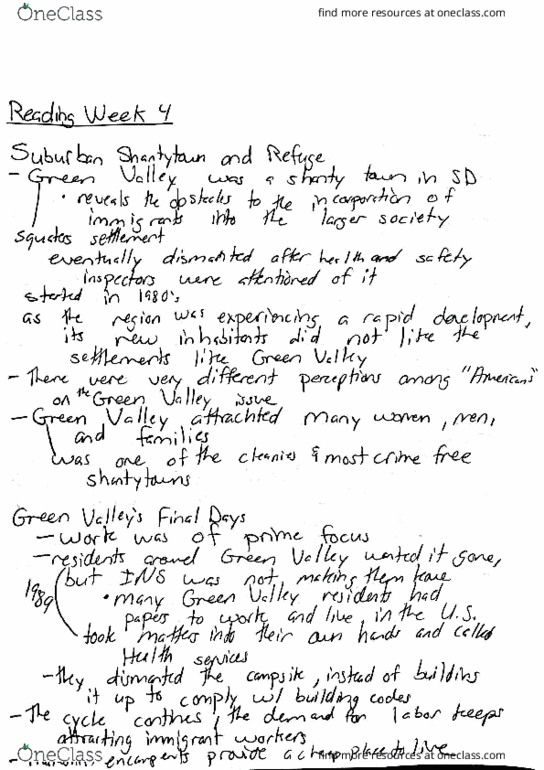 OneClass
find more resources at oneclass.com
Reading Week 4
Suburban Shantytown and Refuge
- Green Valley was a shanty town in SD
• reveals the obstacles to the incorporation of
immigrants into the larger society
squates settlement
eventually dismantled after health and safety
inspectors were attentioned of it
started in 1980's
as the region was experiencing a rapid development,
its new inhabitants did not like the
settlements like Green Valley
- There were very different perceptions among "Americans"
on the Green Valley issue
- Green Valley attrachted many women, men,
and families
was one of the cleanies & most crime free
shantytowns
Green Valley's Final Days
- work was of prime focus
- residents around Green Valley wanted it gone,
but INS was not making them leave
1989
• many Green Valley residents had
papers to work and live in the U.S.
took matters into their own hands and called
Health services
- they dismanted the campsite, instead of building
it up to comply w/ building codes
- The cycle continues, the demand for labor keeps
attracting immigrant workers
- encampents provide a cheap place to live
OneClass
find more resources at oneclass.com